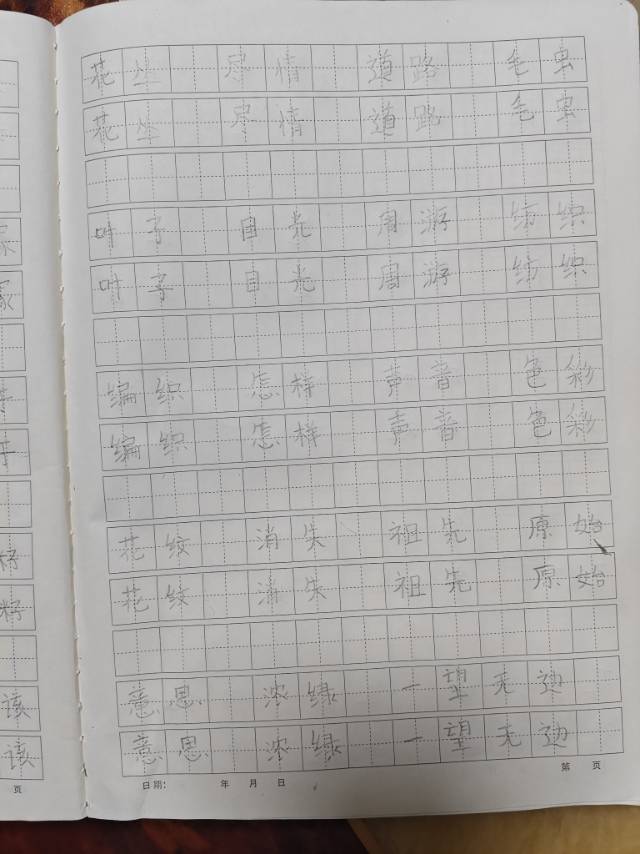 花丛 尽情 道路 毛虫
花丛 尽情 道路 毛虫
叶子 目光 周游 纺织
叶子 目光 周游 纺织
编织 怎样 声音 色彩
编织 怎样 声音 色彩
花纹 消失 祖先 原始
花纹 消失 祖先 原始
意思 浓绿 一望无边
意思 浓绿 一望无边
日期： 年 月 日 第 页
该
该
页